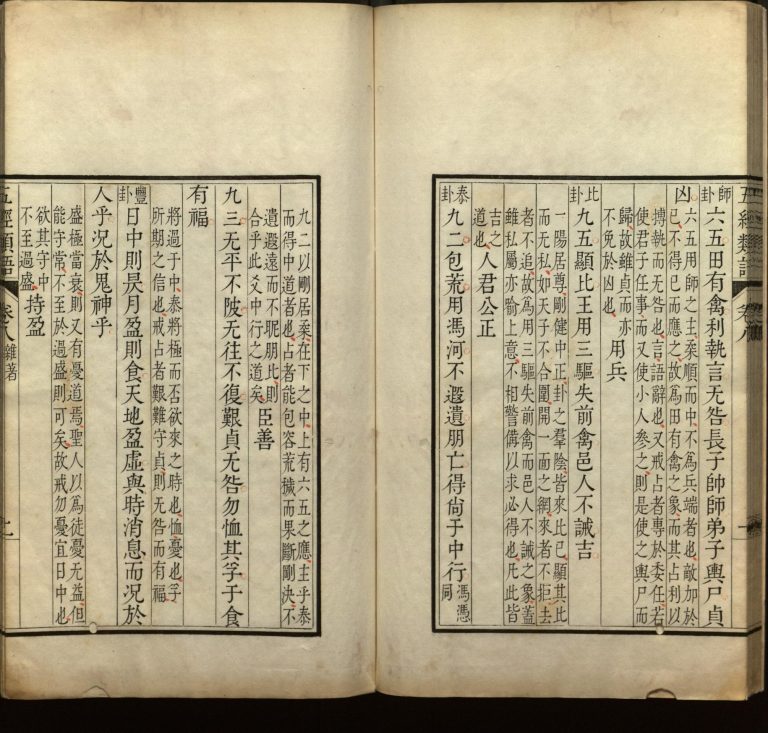 五經類語 卷八
師卦 六五田有禽利執言无咎長子帥師弟子輿尸貞
凶
六五用師之主柔順而中不為兵端者也敵加於
已不得已而應之故為田有禽之象而其占利以
搏執而无咎也言語辭也又戒占者專於委任若
使君子任事而又使小人參之則是使之輿尸而
歸故雖貞而亦
不免於凶也 用兵
比卦 九五顯比王用三驅失前禽邑人不誡吉
一陽居尊剛健中正卦之羣陰皆來比已顯其比
而无私如天子不合圍開一面之網來者不拒去
者不追故為用三驅失前禽而邑人不誡之象蓋
雖私屬亦喻上意不相警備以求必得也凡此皆
吉之
道也 人君公正
泰卦 九二包荒用馮河不遐遺朋亡得尚于中行 馮憑同
九二以剛居柔在下之中上有六五之應主乎泰
而得中道者也占者能包容荒穢而果斷剛決不
遺遐遠而不昵朋比則
合乎此爻中行之道矣 臣善
九三无平不陂无往不復艱貞无咎勿恤其孚于食
有福
將過于中泰將極而否欲來之時也恤憂也孚
所期之信也戒占者艱難守貞則无咎而有福
豐卦 日中則昃月盈則食天地盈虛與時消息而况於
人乎况於鬼神乎
盛極當衰則又有憂道焉聖人以為徒憂无益但
能守常不至於過盛則可矣故戒勿憂宜日中也
欲其守中
不至過盛 持盈
五經類語 卷八 雜著